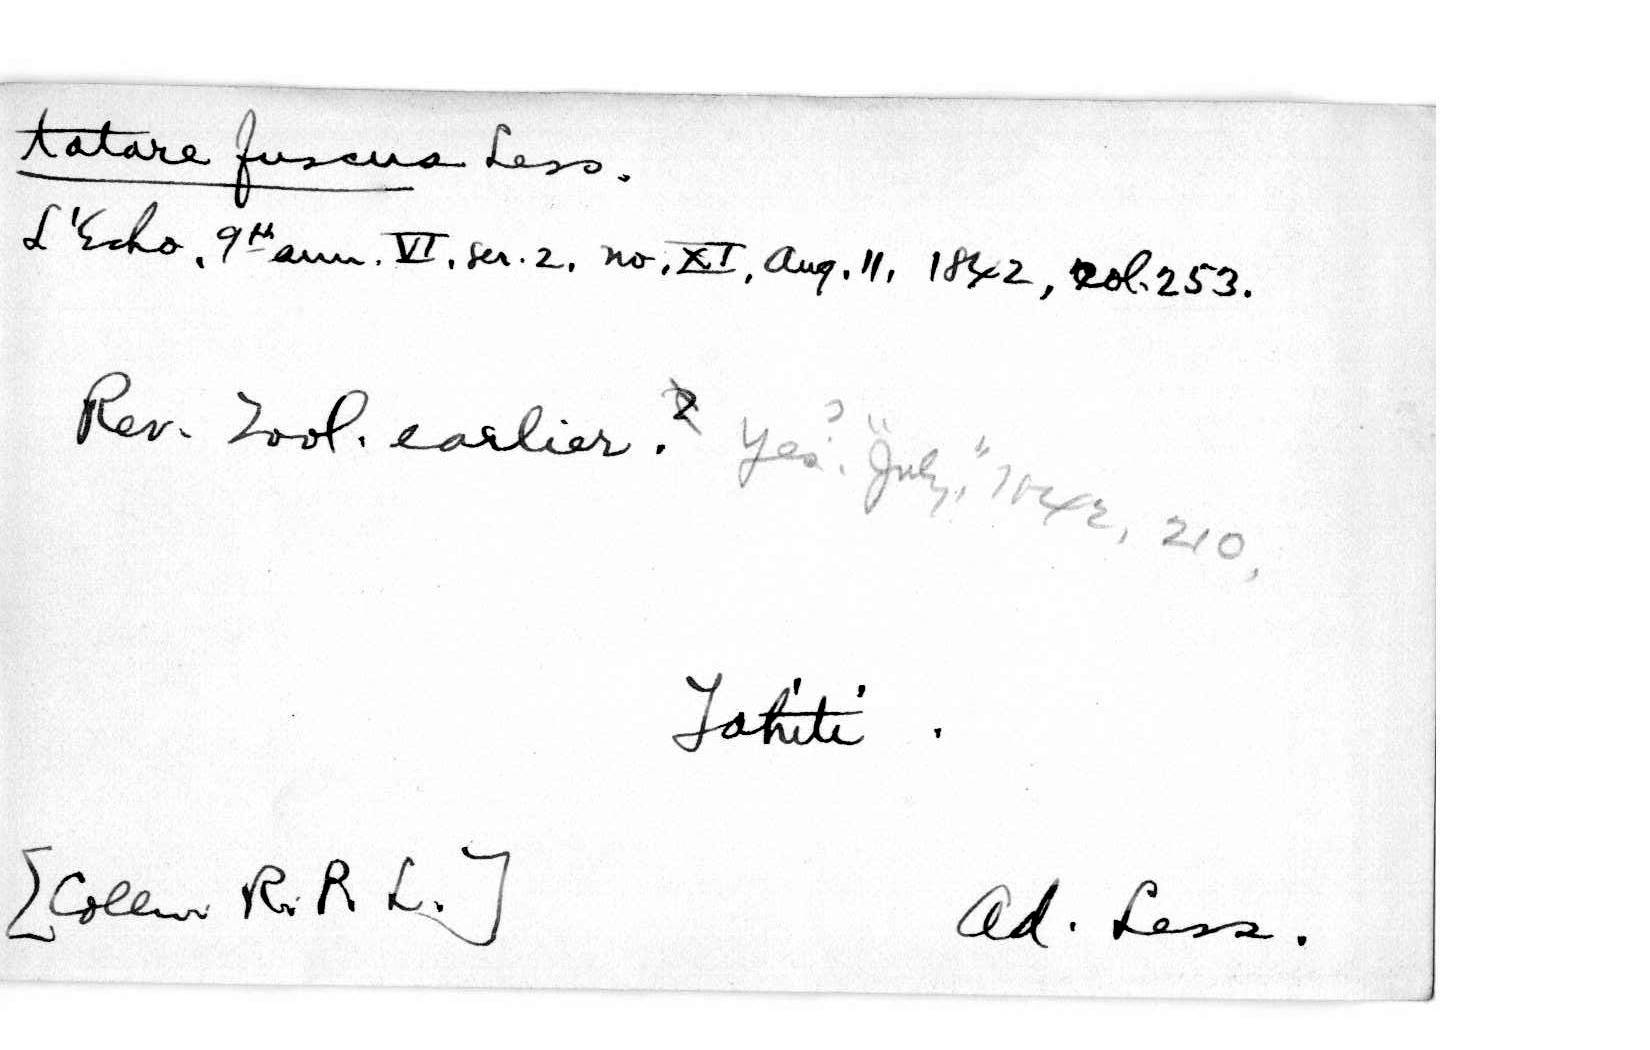 tatare fuscus Less.
L'Echo, 9th ann. VI, ser. 2, no. XI, Aug. 11, 1842, col. 253.
Rev. Zool. earlier.? Yes? "July," 1842, 210,
Tahiti.
[Colln. R. P. L.]
Ad. Less.